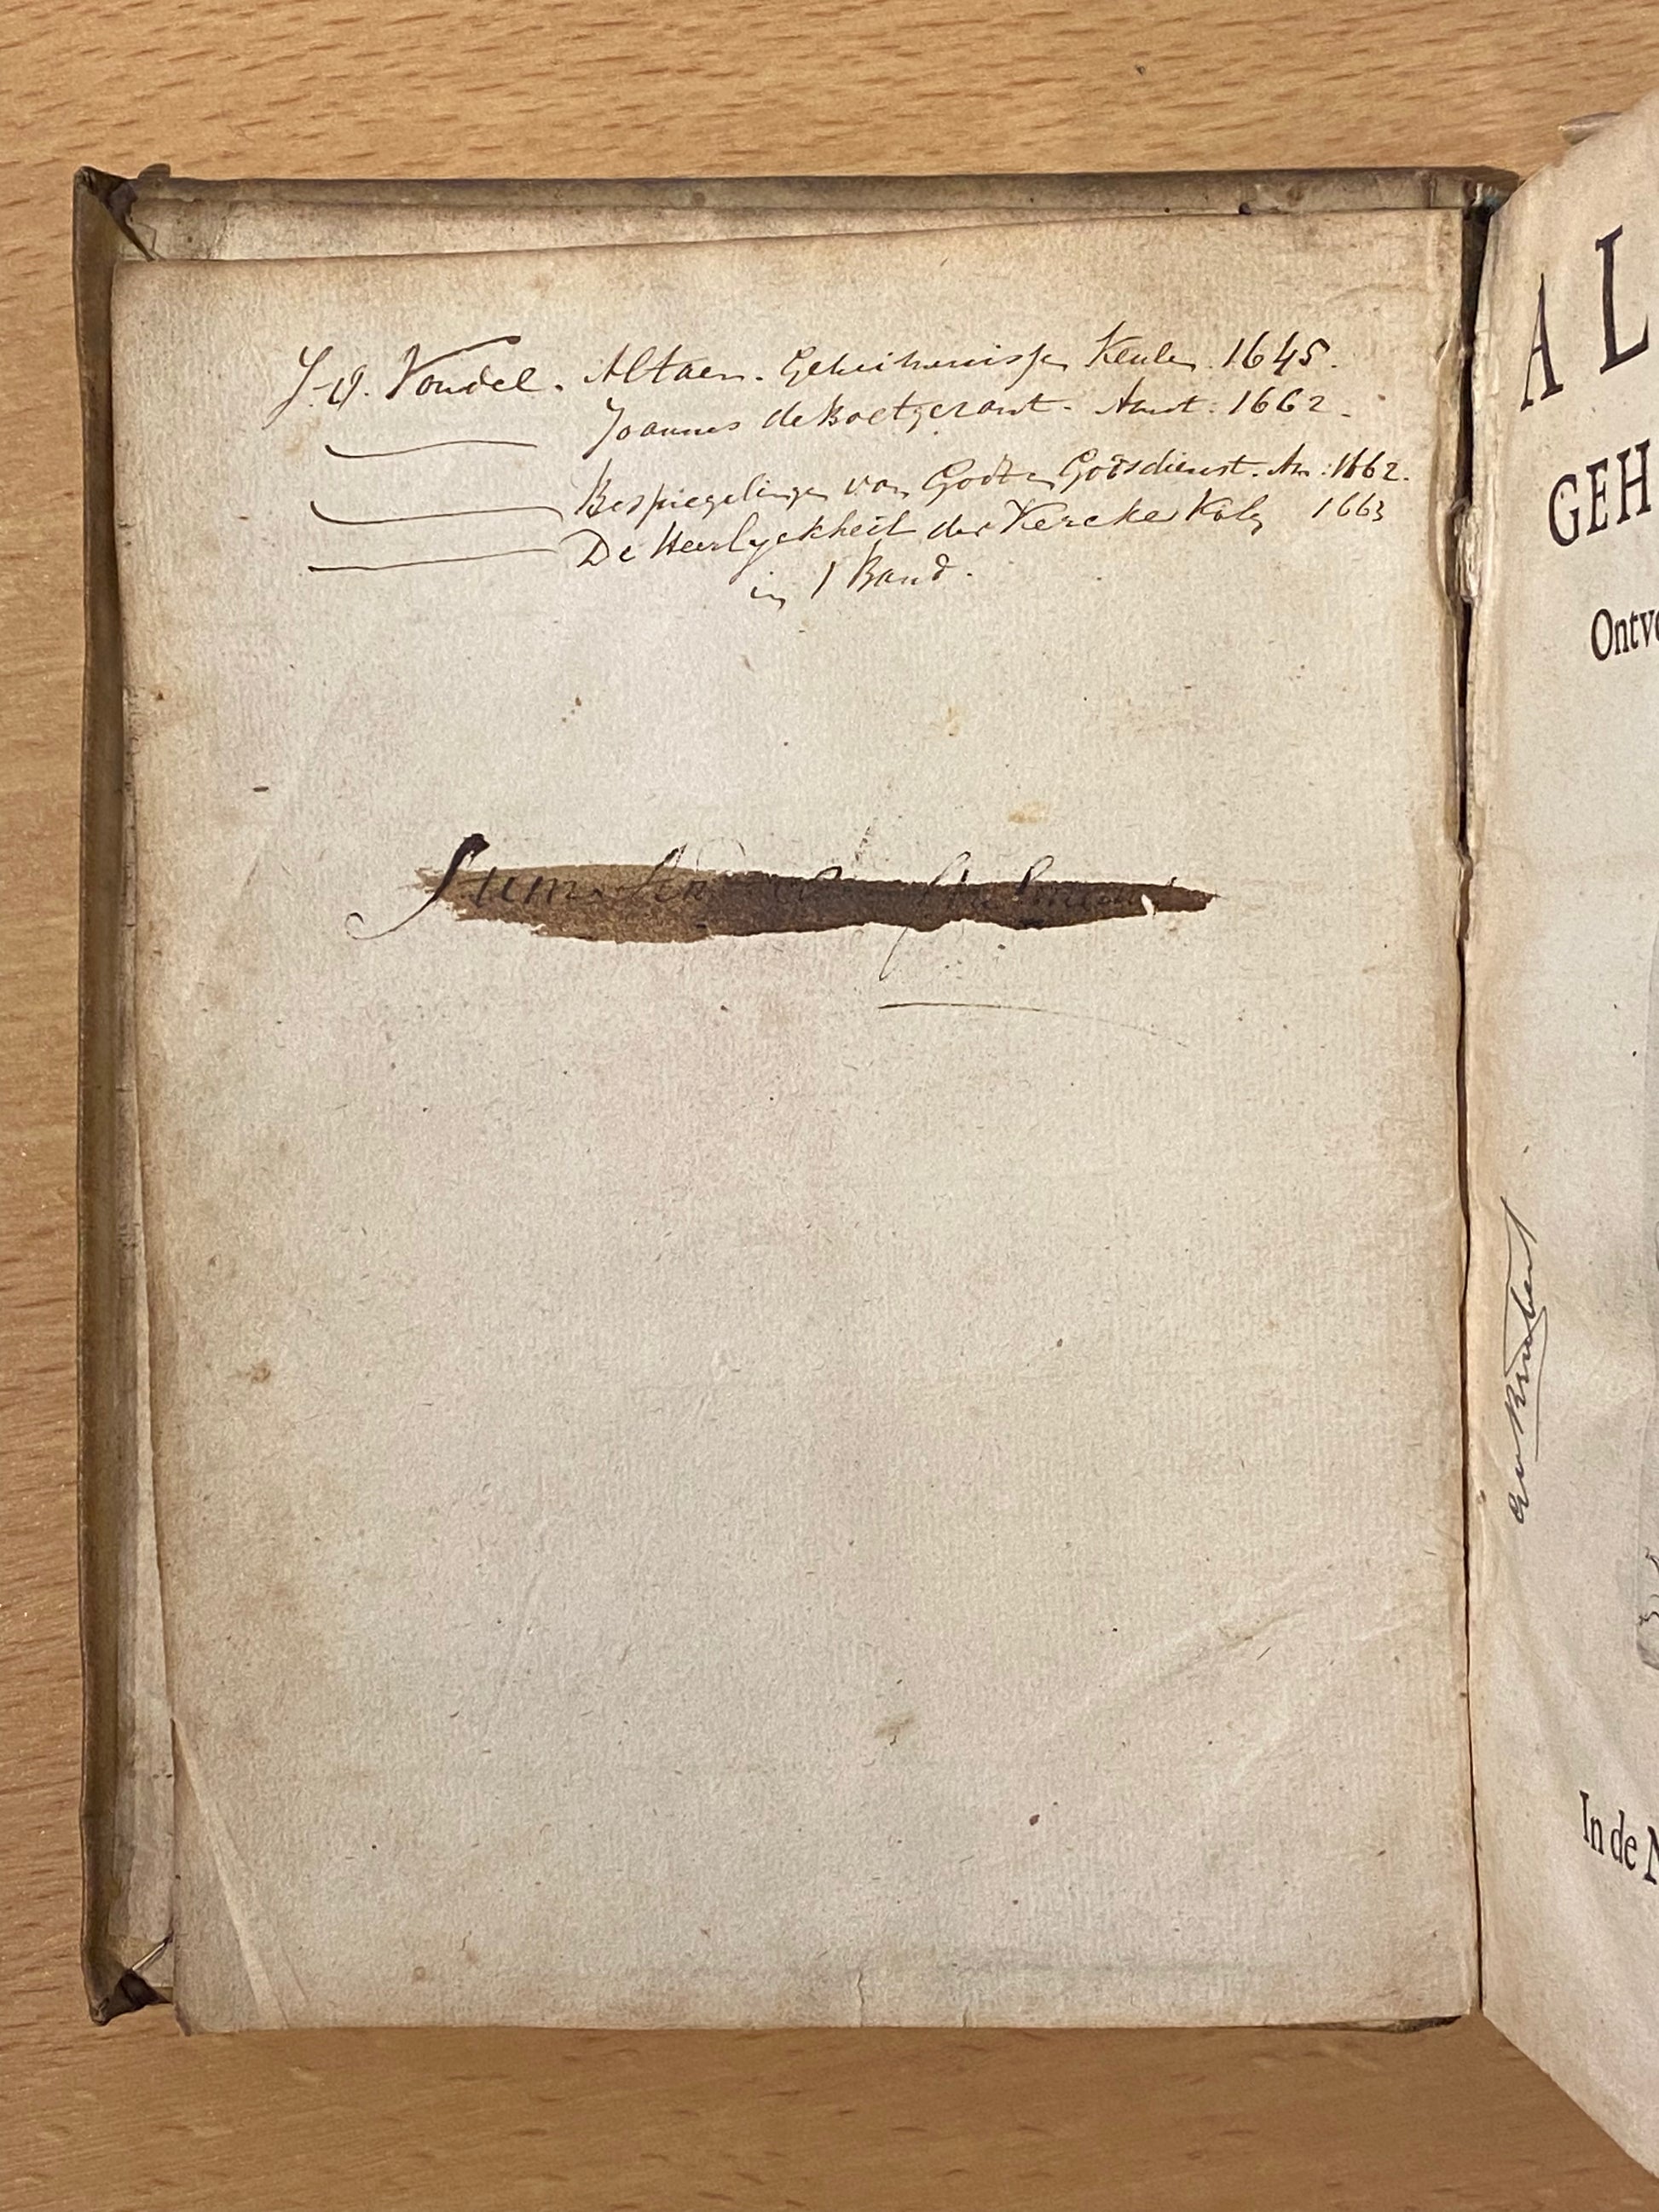 J. v. Vondel. Altaer. Geheimenissen Keulen. 1645.
Joannes de Boetgezant. Amst. 1662.
Bespiegelingen van Godt en Godtsdienst. Am: 1662.
De Heerlyckheit der Kercke Koln 1663
in 1 Band.
Sum
A L
GEH
Ontv
In de N